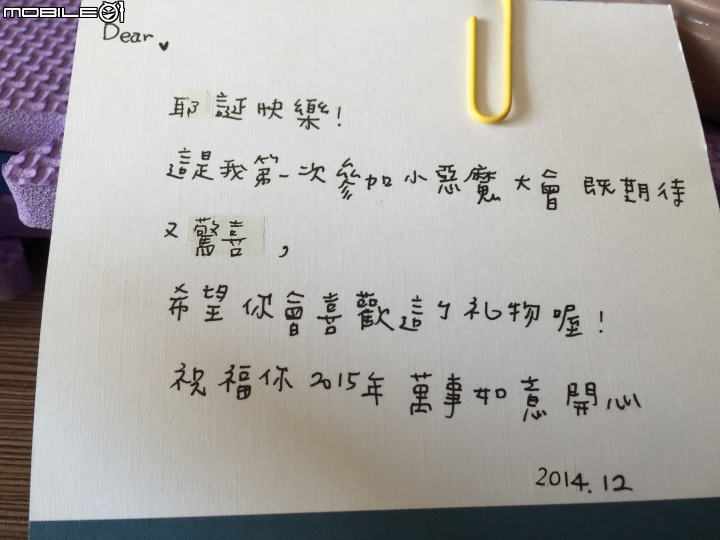 MOBILE01
Dear
耶誕快樂!
這是我第一次參加小惡魔大會 既期待
又驚喜,
希望你會喜歡這个礼物喔!
祝福你2015年 萬事如意開心
2014.12